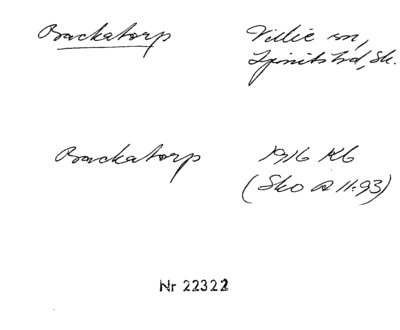 Backatorp Villie sn,
Ljunits hd, Sk.
Backatorp 1916 Kb
(Sko A 11:93)
Nr 22322